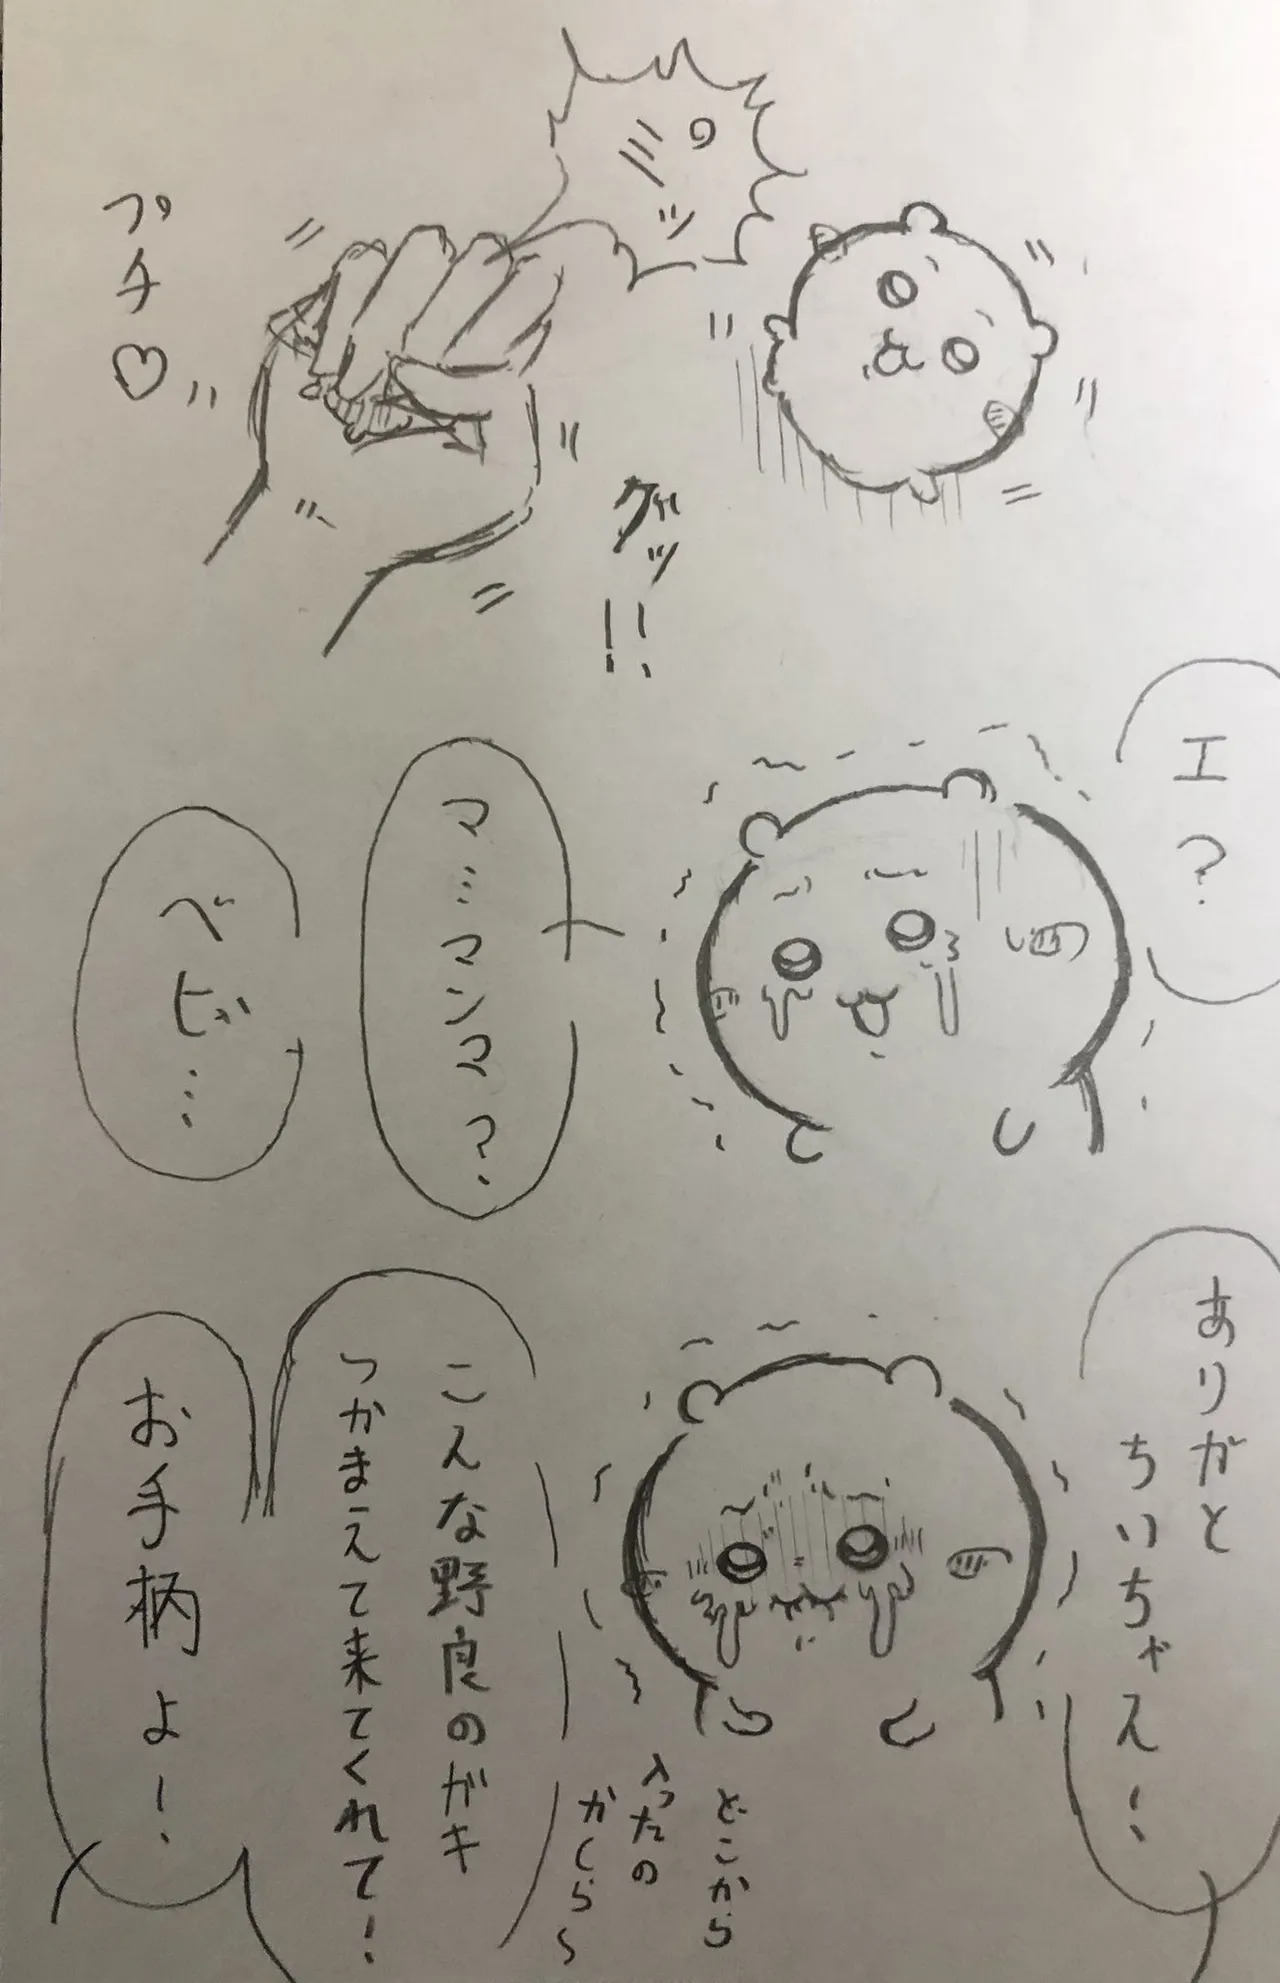 グッ!!
プチ♡
エ?
マ…マンマ?
ベビ…
ありがと
ちいちゃん!
どこから
入ったの
かしら〜
こんな野良のガキ
つかまえて来てくれて!
お手柄よ!